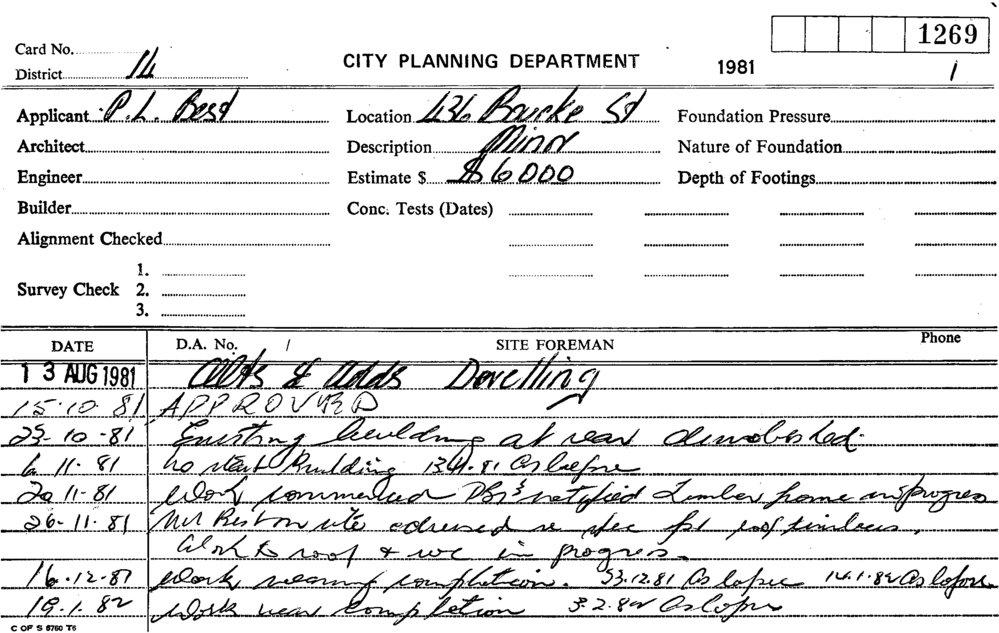 1269
Card No.
District 14
CITY PLANNING DEPARTMENT
1981
1
Applicant P. L. Best
Location 436 Bourke St
Foundation Pressure
Architect
Description Minor
Nature of Foundation
Engineer
Estimate $ $6000
Depth of Footings
Builder
Conc. Tests (Dates)
Alignment Checked
1.
Survey Check 2.
3.
DATE D.A. No. / SITE FOREMAN Phone
13 AUG 1981 Alts & Adds Dwelling
15.10.81 APPROVED
23-10-81 Existing building at rear demolished.
6.11.81 no start Building As before
20 11-81 Work commenced notified Timber frame in progress
26-11.81 Mr Best on site advised re roof timbers.
Work to roof & wc in progress.
16.12.81 Work nearing completion. 23.12.81 As before 14.1.82 As before
19.1.82 Work near completion 3.2.82 As before
C OF S 8760 T6